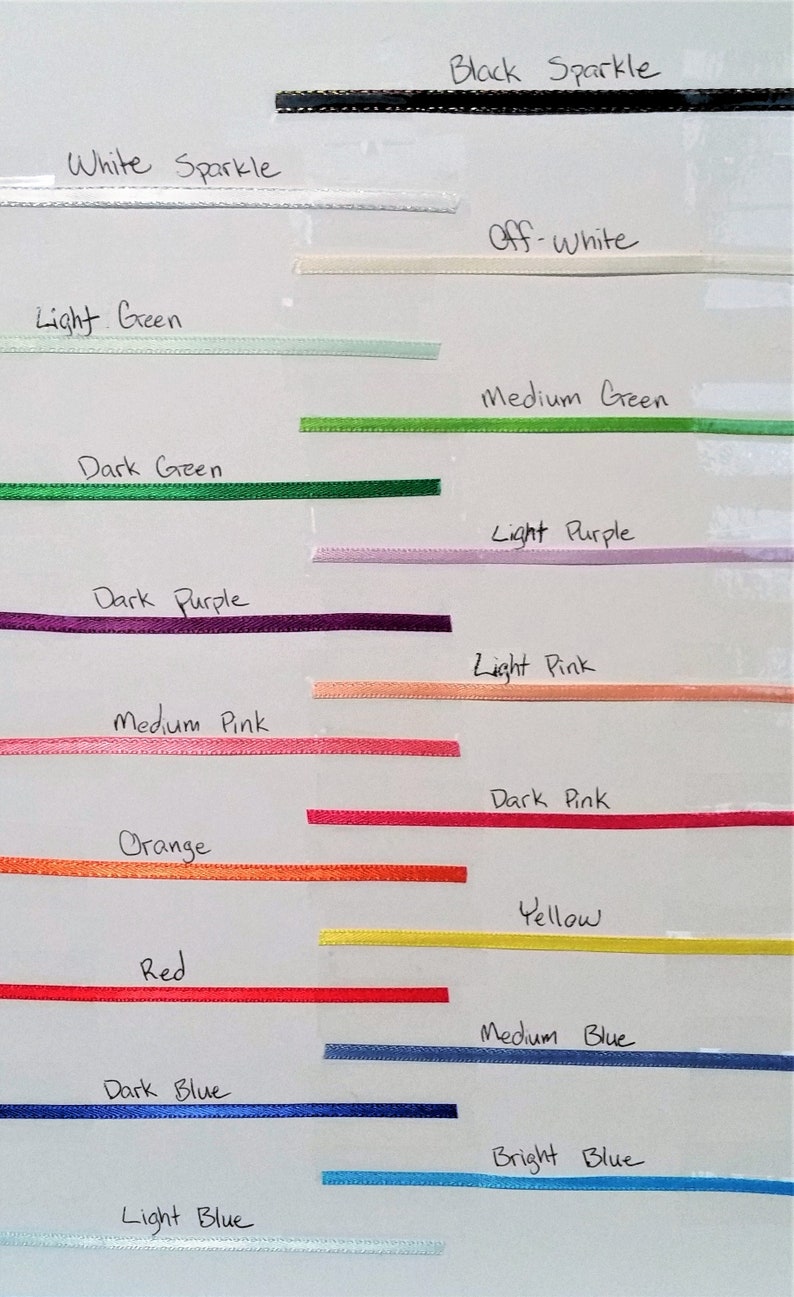 Black Sparkle
White Sparkle
Off-White
Light Green
Medium Green
Dark Green
Light Purple
Dark Purple
Light Pink
Medium Pink
Dark Pink
Orange
Yellow
Red
Medium Blue
Dark Blue
Bright Blue
Light Blue